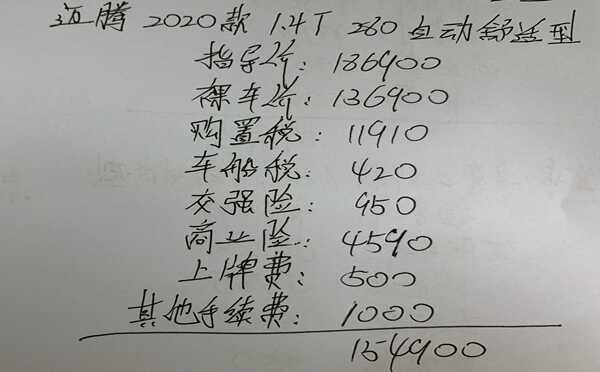 迈腾 2020款 1.4T 280 自动舒适型
指导价: 186900
裸车价: 136900
购置税: 11910
车船税: 420
交强险: 950
商业险: 4590
上牌费: 500
其他手续费: 1000
154900